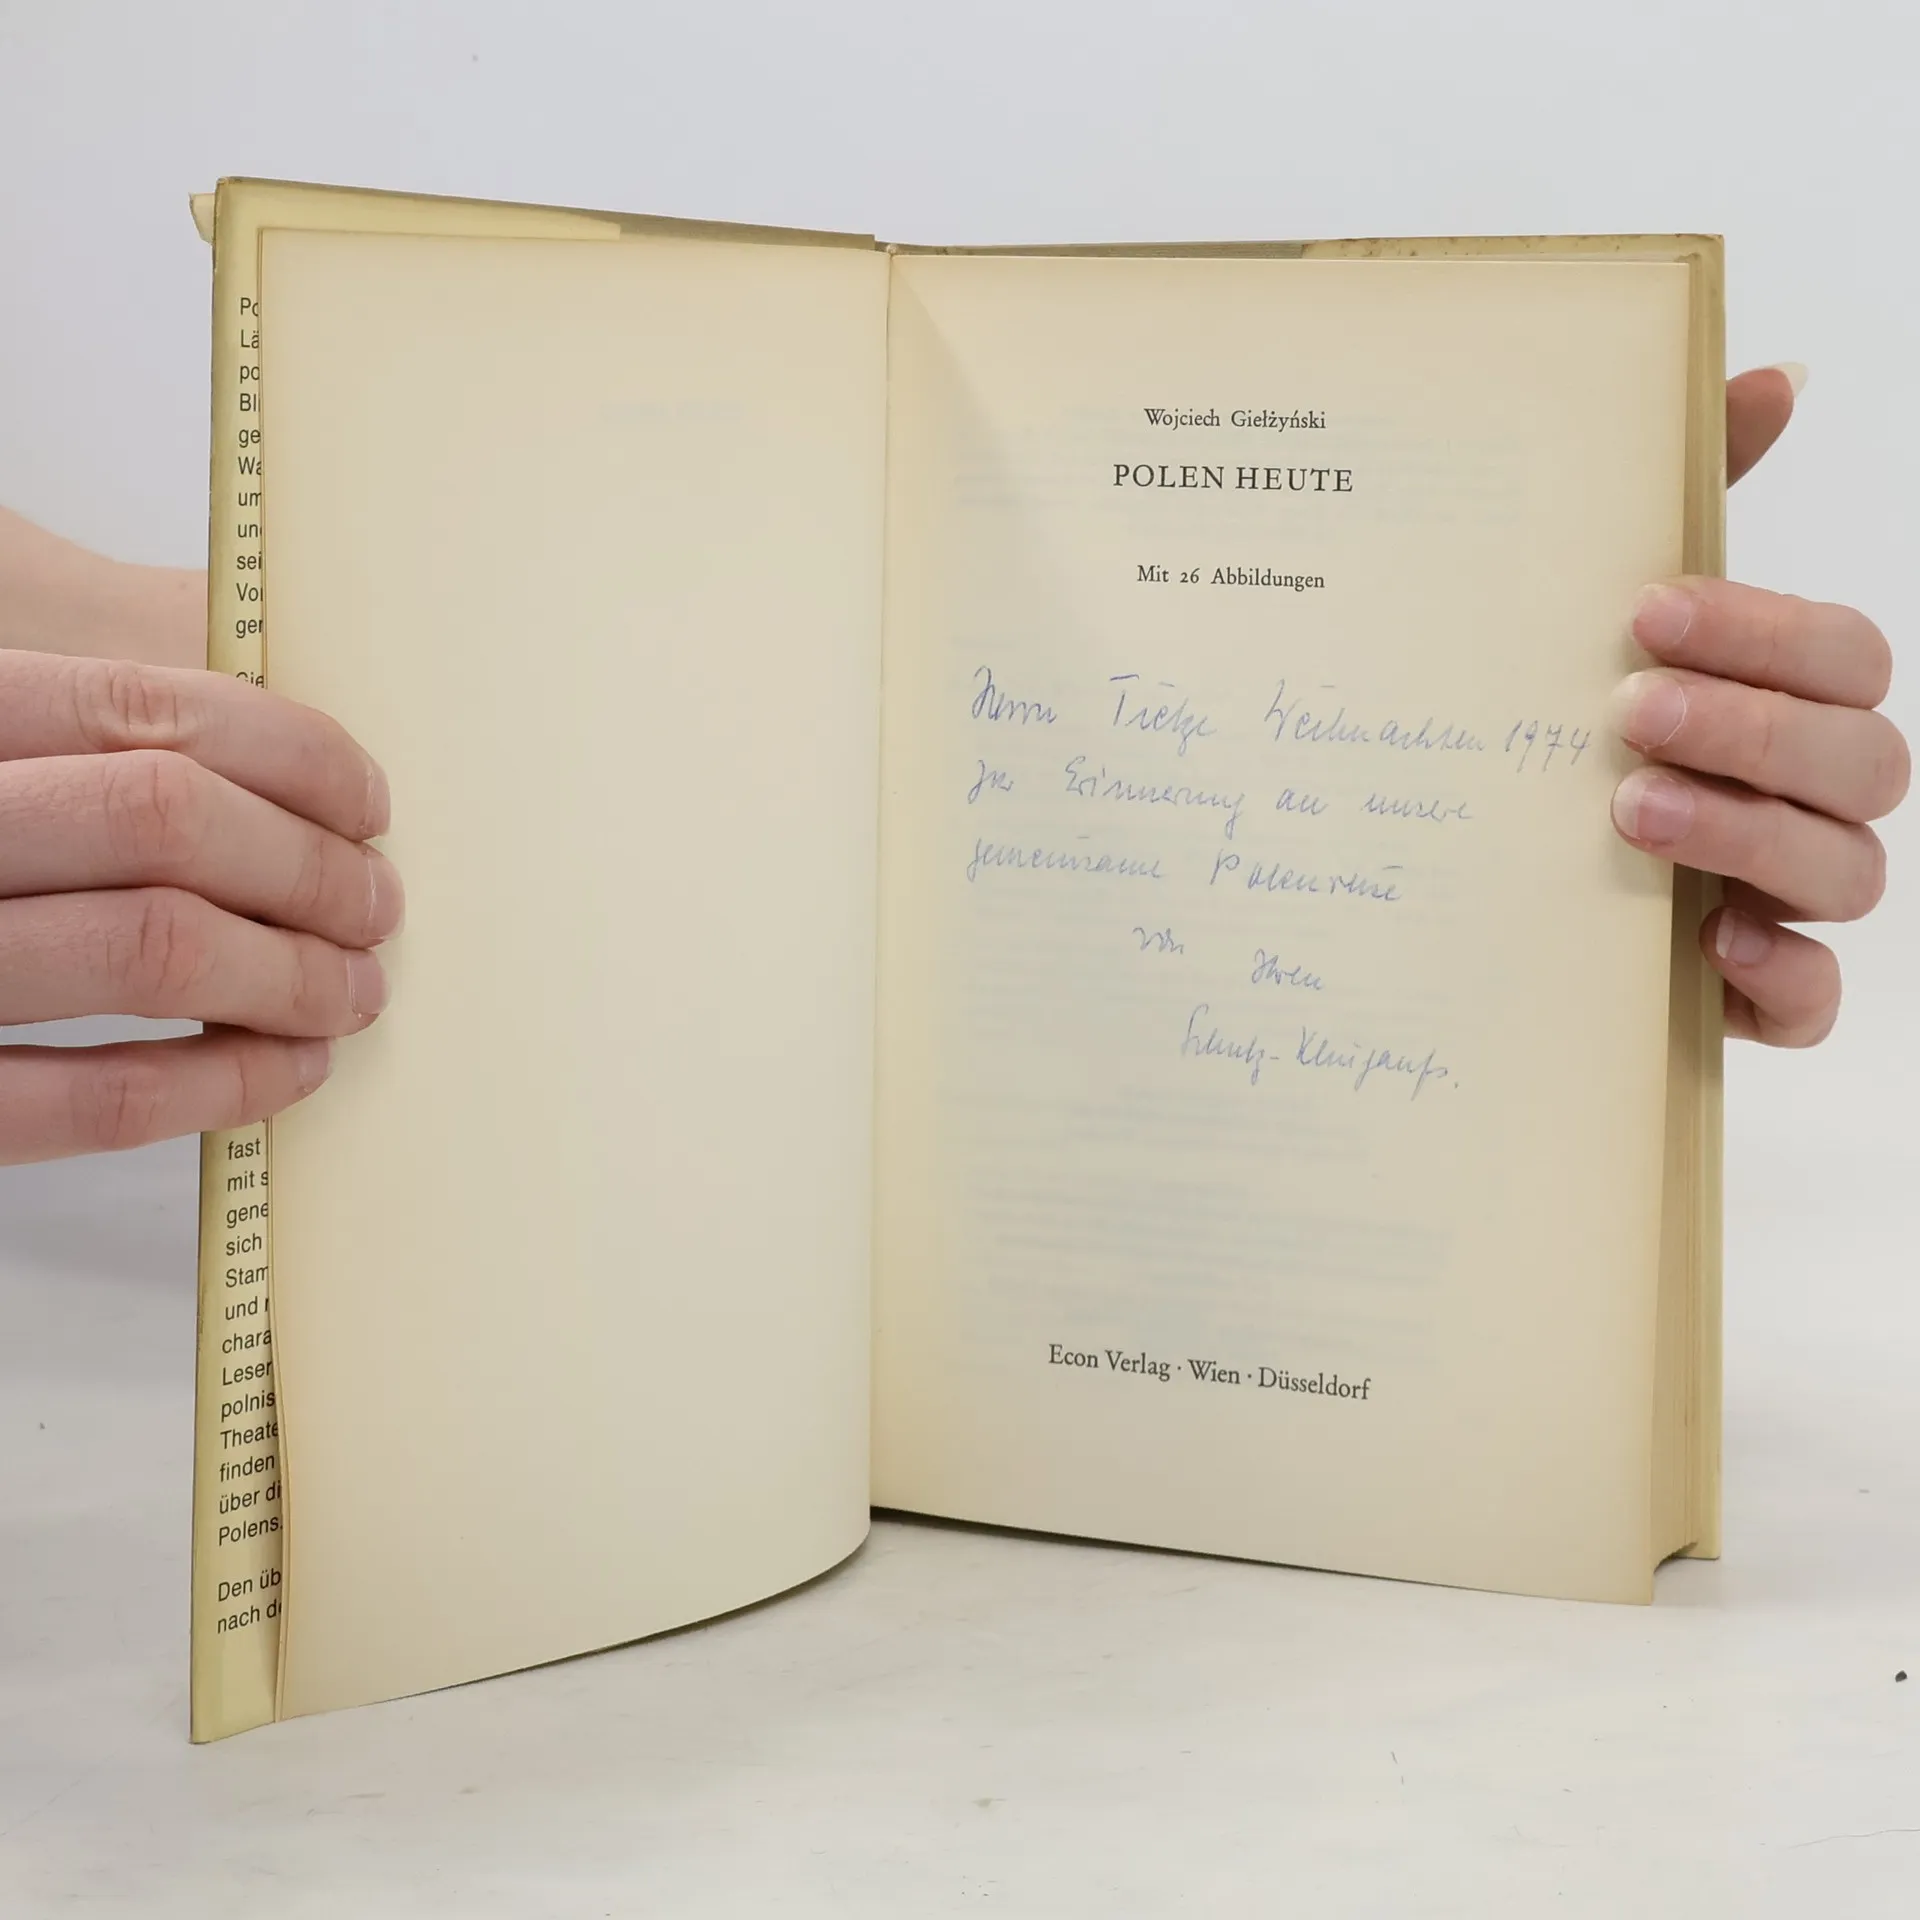 Po
Lä
po
Bli
ge
Wa
um
und
sei
Vor
ger
Gie
fast
mit s
gene
sich
Stam
und r
chara
Leser
polnis
Theate
finden
über di
Polens.
Den üb
nach de
Wojciech Giełżyński
POLEN HEUTE
Mit 26 Abbildungen
Herrn Tietze Weihnachten 1974
zur Erinnerung an unsere
gemeinsame Polenreise
von Ihren
Econ Verlag · Wien · Düsseldorf